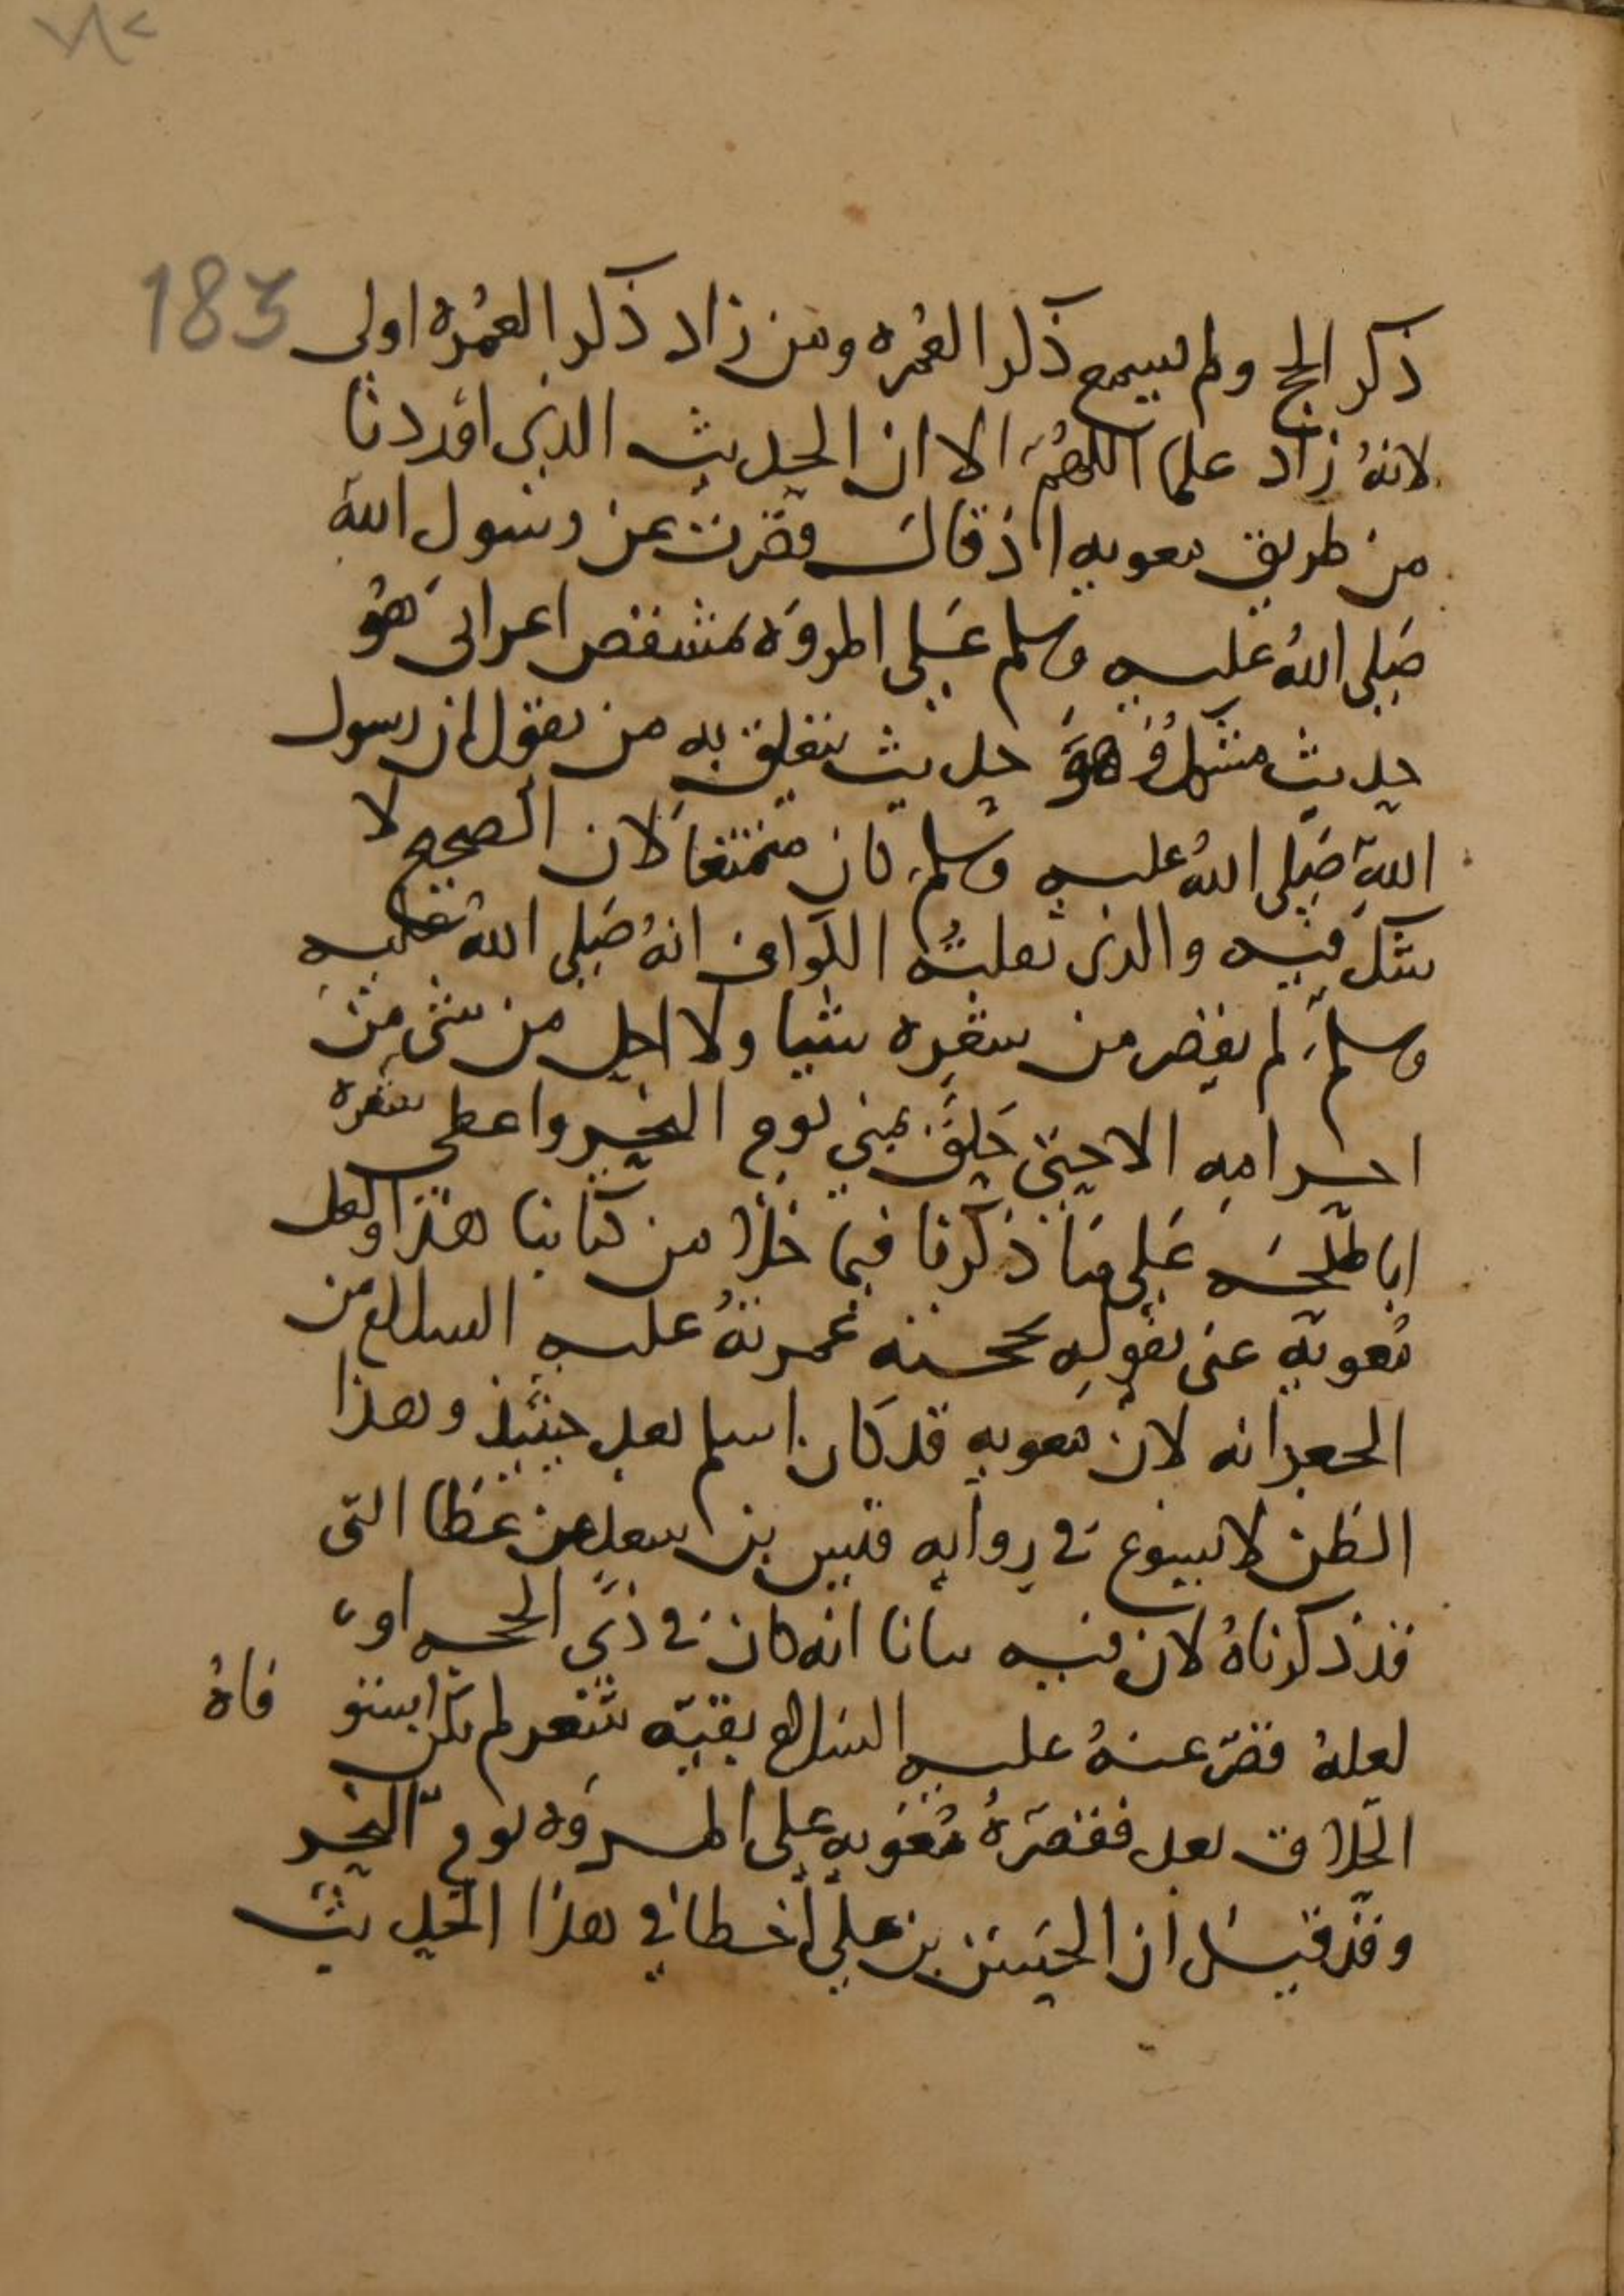 183
ذكر الحج ولم يسمع ذكر العمره ومن زاد ذكر العمره اولى
لانه زاد علما اللهم الا ان الحديث الذي اوردنا
من طريق معويه اذ قال قصرت عن رسول الله
صلى الله عليه وسلم على المروه بمشقص اعرابي هو
حديث مشكل وهو حديث يتعلق به من يقول ان رسول
الله صلى الله عليه وسلم كان متمتعا لان الصحيح لا
شك فيه والذي نقلته الكواف انه صلى الله عليه
وسلم لم يقصر من شعره شيا ولا احل من شي من
احرامه الا حين حلق بمنى يوم النحر واعطى شعره
ابا طلحه على ما ذكرنا فيما خلا من كتابنا هذا ولعل
معويه عنى بقوله بحجته عمرته عليه السلام من
الجعرانه لان معويه قد كان اسلم بعد حينئذ وهذا
الظن لا يسوغ في روايه قيس بن سعد عن عطا التي
قد ذكرناه لان فيه بيانا انه كان في ذي الحجه او
لعله قصر عنه عليه السلام بقيه شعر لم يكن استوفاه
الحلاق بعد فقصره معويه على المروه يوم النحر
وقد قيل ان الحسن بن علي اخطا في هذا الحديث